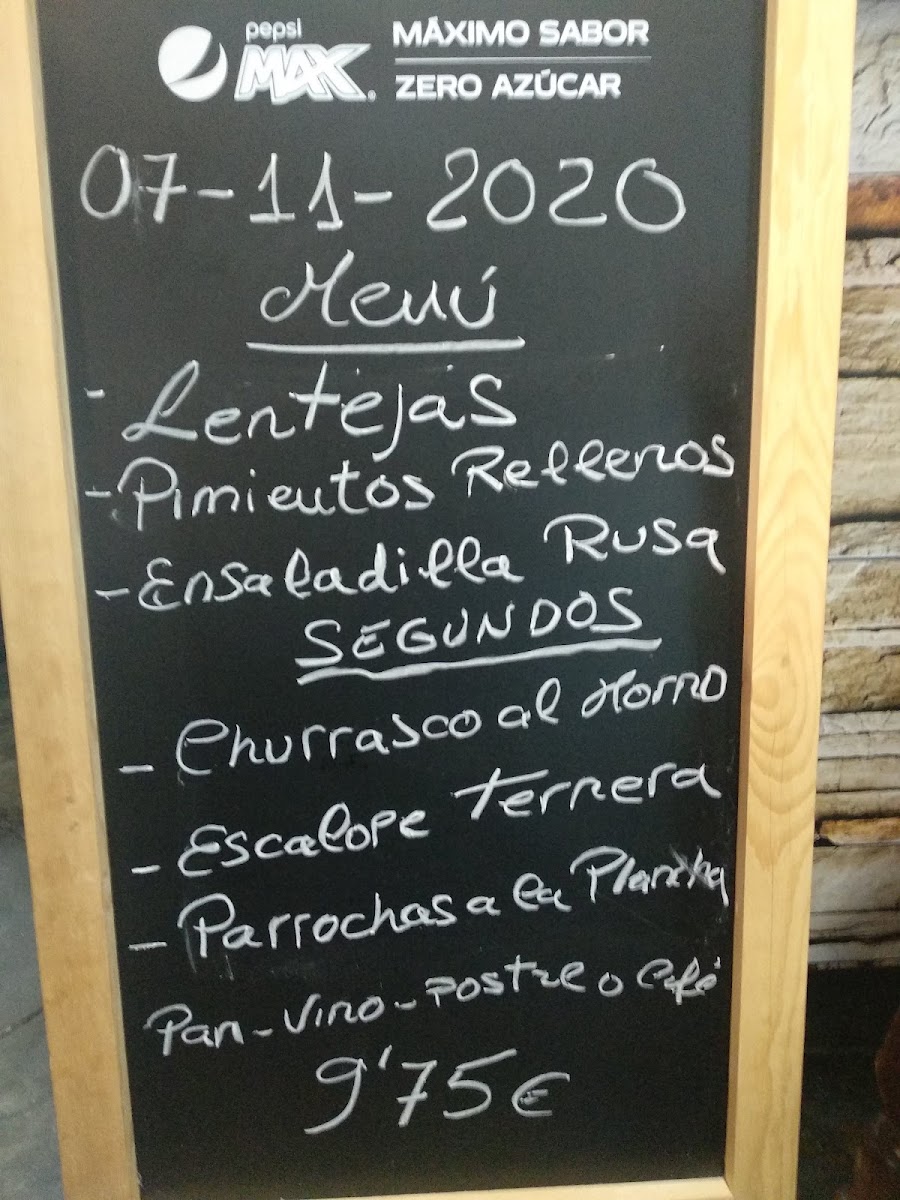 pepsi
MAX
MÁXIMO SABOR
ZERO AZÚCAR
07-11-2020
Menú
- Lentejas
- Pimientos Rellenos
- Ensaladilla Rusa
SEGUNDOS
- Churrasco al Horno
- Escalope Ternera
- Parrochas a la Plancha
Pan - Vino - Postre o Café
9'75€